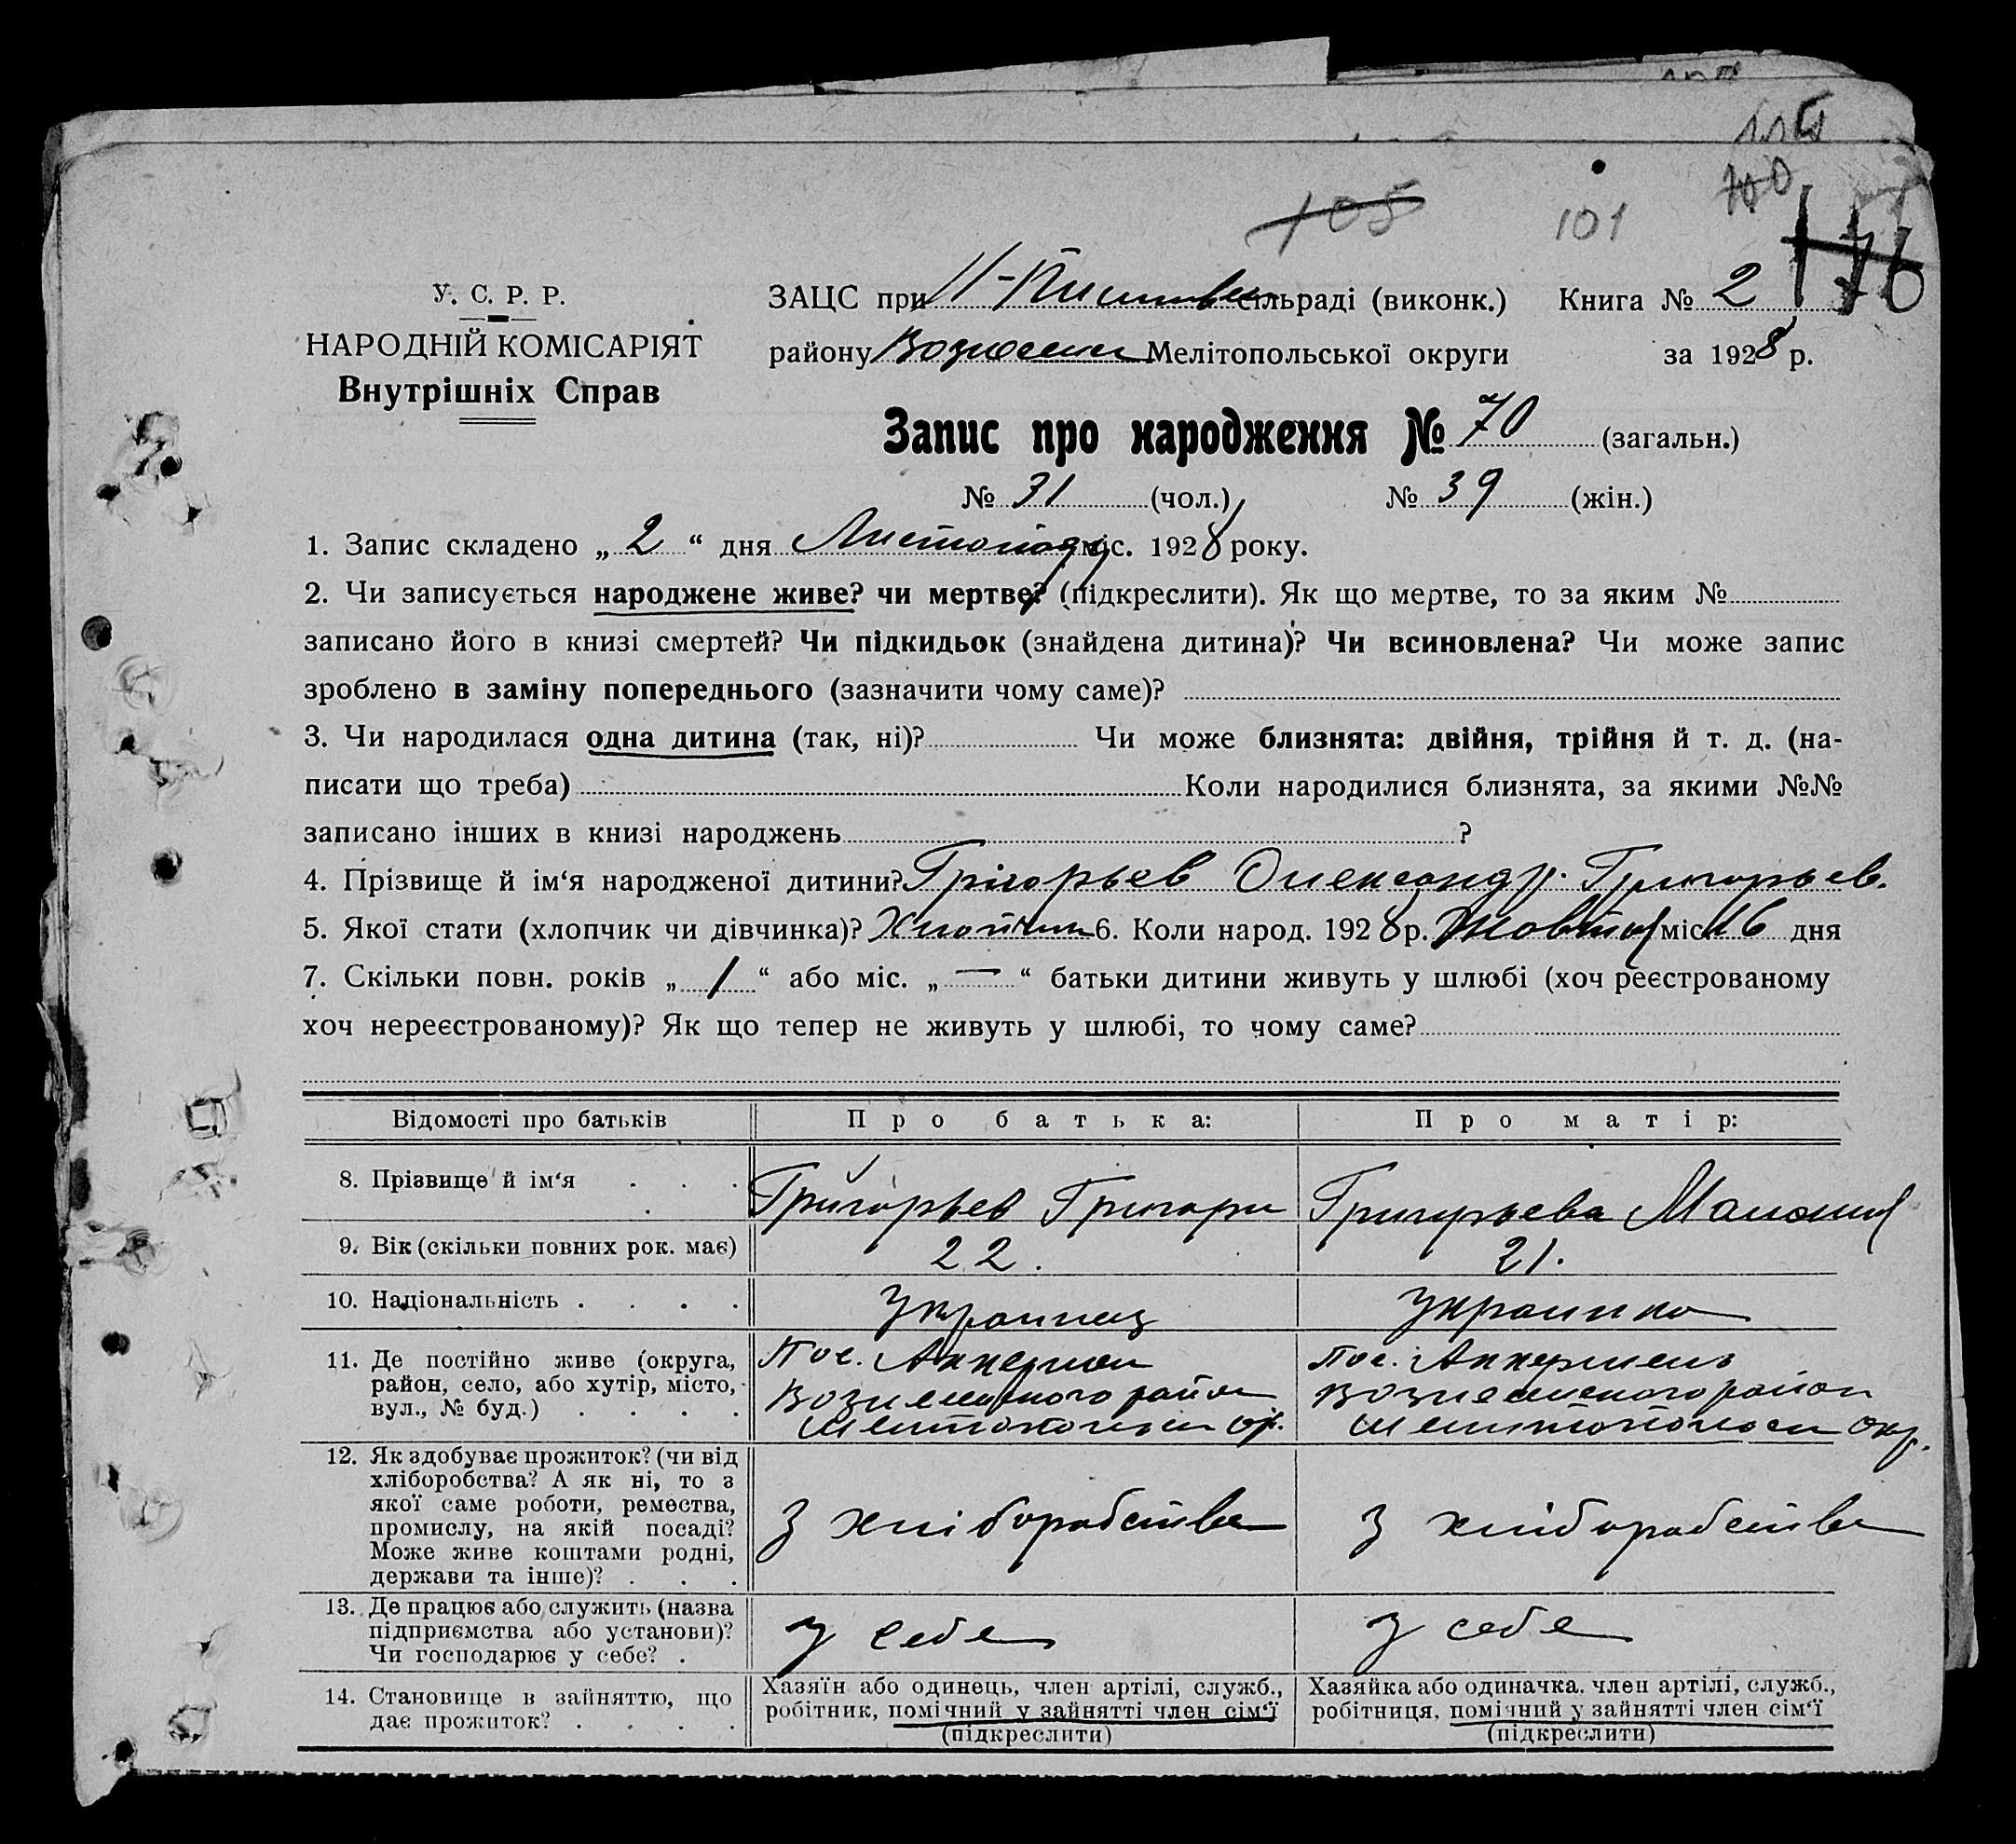 105
101
100
176
У. С. Р. Р.
НАРОДНІЙ КОМІСАРІЯТ
Внутрішніх Справ
ЗАЦС при сільраді (виконк.) Книга № 2
району Вознесен Мелітопольської округи за 1928 р.
Запис про народження № 70 (загальн.)
№ 31 (чол.) № 39 (жін.)
1. Запис складено „ 2 “ дня Листопаду міс. 1928 року.
2. Чи записується народжене живе? чи мертве? (підкреслити). Як що мертве, то за яким №
записано його в книзі смертей? Чи підкидьок (знайдена дитина)? Чи всиновлена? Чи може запис
зроблено в заміну попереднього (зазначити чому саме)?
3. Чи народилася одна дитина (так, ні)? Чи може близнята: двійня, трійня й т. д. (на-
писати що треба) Коли народилися близнята, за якими №№
записано інших в книзі народжень ?
4. Прізвище й ім‘я народженої дитини? Грігорьев Олександр Григорьев.
5. Якої стати (хлопчик чи дівчинка)? Хлопчик 6. Коли народ. 1928 р. Жовтня міс 16 дня
7. Скільки повн. років „ 1 “ або міс. „ — “ батьки дитини живуть у шлюбі (хоч реєстрованому
хоч нереєстрованому)? Як що тепер не живуть у шлюбі, то чому саме?
Відомості про батьків Про батька: Про матір:
8. Прізвище й ім‘я . . . Григорьев Григори Григурьева
9. Вік (скільки повних рок. має) 22. 21.
10. Національність . . . . Украинец Украинка
11. Де постійно живе (округа,
район, село, або хутір, місто,
вул., № буд.) . . . .
Пос. Аккермен
Вознесенского район
Мелитопольск ок.
Пос. Аккермень
Вознесенского район
Мелитопольск окр.
12. Як здобуває прожиток? (чи від
хліборобства? А як ні, то з
якої саме роботи, ремества,
промислу, на якій посаді?
Може живе коштами родні,
держави та інше)? . . .
З хліборобства
З хліборобства
13. Де працює або служить (назва
підприємства або установи)?
Чи господарює у себе? .
У себе
У себе
14. Становище в зайняттю, що
дає прожиток? . . . .
Хазяїн або одинець, член артілі, служб.,
робітник, помічний у зайнятті член сім‘ї
(підкреслити)
Хазяйка або одиначка, член артілі, служб.,
робітниця, помічний у зайнятті член сім‘ї
(підкреслити)